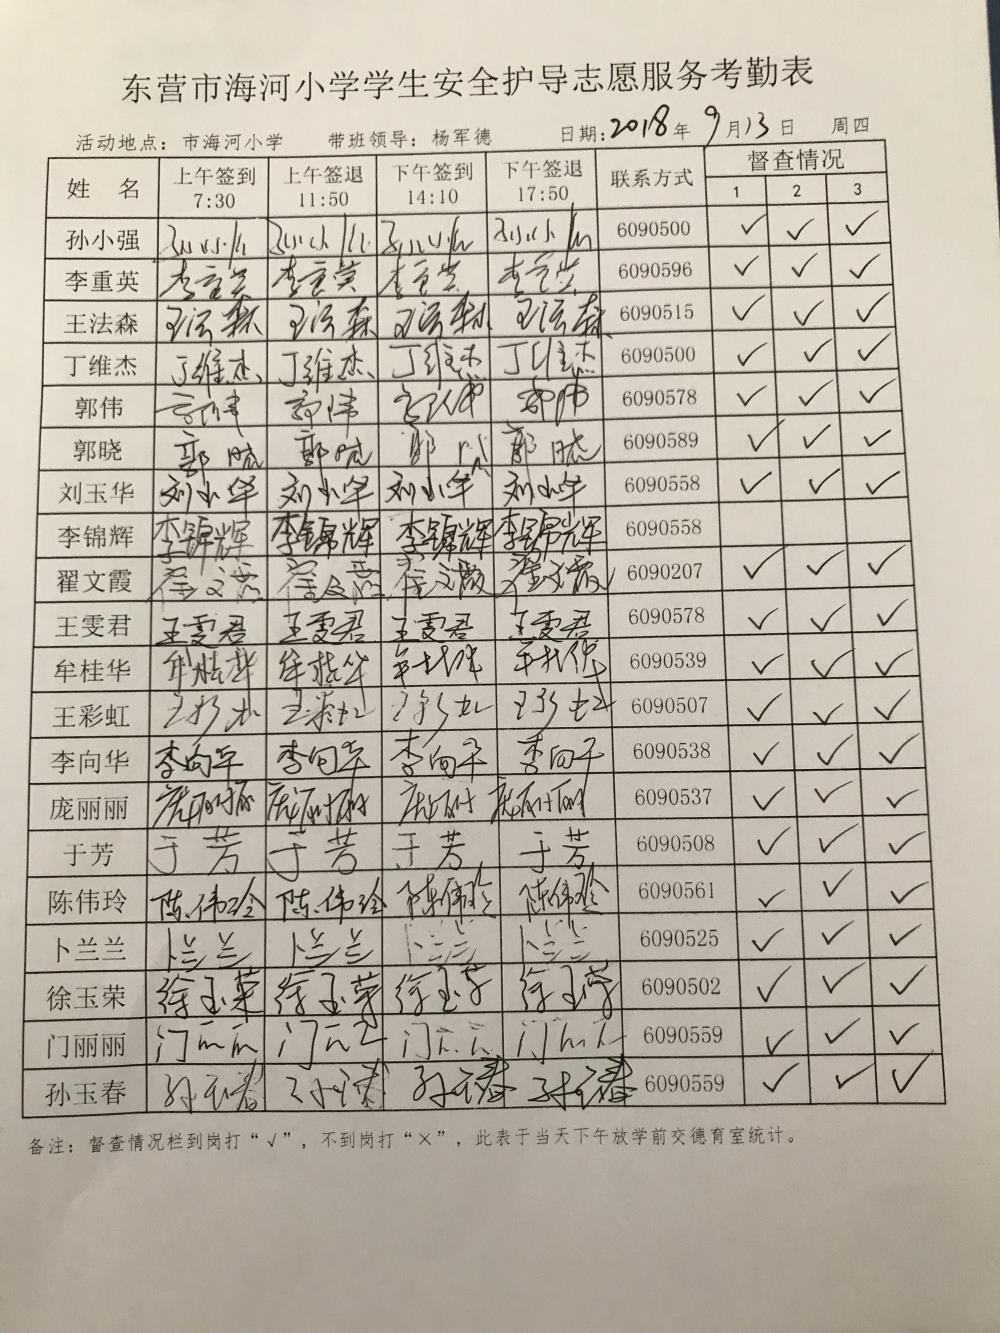 东营市海河小学学生安全护导志愿服务考勤表
活动地点：市海河小学 带班领导：杨军德 日期:2018年9月13日 周四
姓 名 上午签到 7:30 上午签退 11:50 下午签到 14:10 下午签退 17:50 联系方式 督查情况 1 2 3
孙小强 6090500 ✓ ✓ ✓
李重英 李重英 李重英 李重英 李重英 6090596 ✓ ✓ ✓
王法森 王法森 王法森 王法森 王法森 6090515 ✓ ✓ ✓
丁维杰 丁维杰 丁维杰 丁维杰 丁维杰 6090500 ✓ ✓ ✓
郭伟 郭伟 郭伟 郭伟 郭伟 6090578 ✓ ✓ ✓
郭晓 郭晓 郭晓 郭晓 郭晓 6090589 ✓ ✓ ✓
刘玉华 刘玉华 刘玉华 刘玉华 刘玉华 6090558 ✓ ✓ ✓
李锦辉 李锦辉 李锦辉 李锦辉 李锦辉 6090558
翟文霞 翟文霞 翟文霞 翟文霞 翟文霞 6090207 ✓ ✓ ✓
王雯君 王雯君 王雯君 王雯君 王雯君 6090578 ✓ ✓ ✓
牟桂华 牟桂华 牟桂华 牟桂华 牟桂华 6090539 ✓ ✓ ✓
王彩虹 王彩虹 王彩虹 王彩虹 王彩虹 6090507 ✓ ✓ ✓
李向华 李向华 李向华 李向华 李向华 6090538 ✓ ✓ ✓
庞丽丽 6090537 ✓ ✓ ✓
于芳 于芳 于芳 于芳 于芳 6090508 ✓ ✓ ✓
陈伟玲 陈伟玲 陈伟玲 陈伟玲 陈伟玲 6090561 ✓ ✓ ✓
卜兰兰 卜兰兰 卜兰兰 卜兰兰 卜兰兰 6090525 ✓ ✓ ✓
徐玉荣 徐玉荣 徐玉荣 徐玉荣 徐玉荣 6090502 ✓ ✓ ✓
门丽丽 门丽丽 门丽丽 门丽丽 门丽丽 6090559 ✓ ✓ ✓
孙玉春 孙玉春 孙玉春 孙玉春 孙玉春 6090559 ✓ ✓ ✓
备注：督查情况栏到岗打“√”，不到岗打“×”，此表于当天下午放学前交德育室统计。